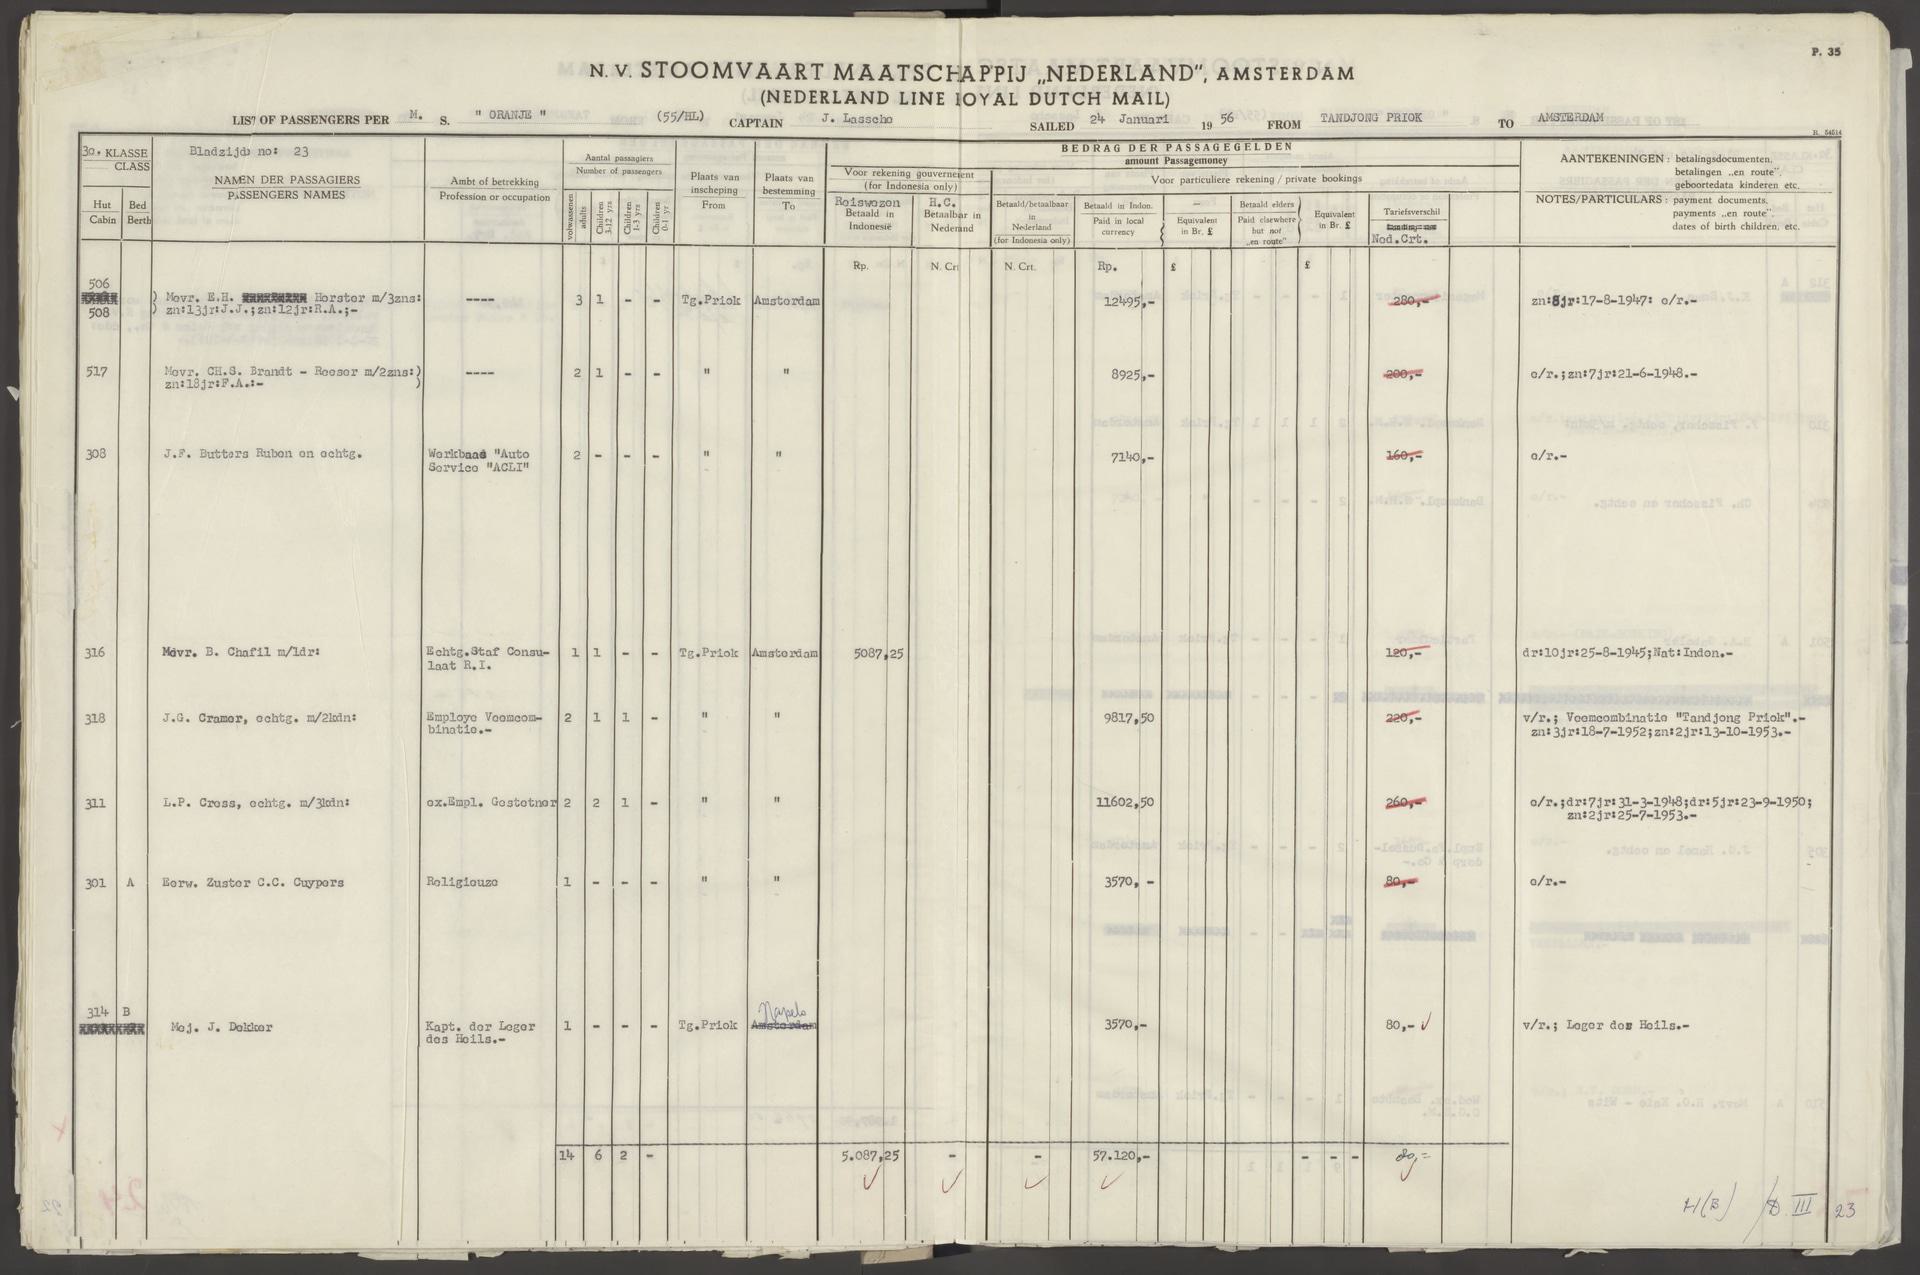 P. 35
N. V. STOOMVAART MAATSCHAPPIJ „NEDERLAND", AMSTERDAM
(NEDERLAND LINE ROYAL DUTCH MAIL)
LIST OF PASSENGERS PER M. S. " ORANJE " (55/HL) CAPTAIN J. Lassche SAILED 24 Januari 1956 FROM TANDJONG PRIOK TO AMSTERDAM
R. 54614
3e. KLASSE
CLASS
Bladzijde no: 23
NAMEN DER PASSAGIERS
PASSENGERS NAMES
Hut
Cabin
Bed
Berth
Ambt of betrekking
Profession or occupation
Aantal passagiers
Number of passengers
volwassenen
adults
Children
3-12 yrs
Children
1-3 yrs
Children
0-1 yr
Plaats van
inscheping
From
Plaats van
bestemming
To
BEDRAG DER PASSAGEGELDEN
amount Passagemoney
Voor rekening gouvernement
(for Indonesia only)
Reiswezen
Betaald in
Indonesië
H.C.
Betaalbar in
Nederland
Voor particuliere rekening / private bookings
Betaald/betaalbaar
in
Nederland
(for Indonesia only)
Betaald in Indon.
Paid in local
currency
—
Equivalent
in Br. £
Betaald elders
Paid elsewhere
but not
„en route"
Equivalent
in Br. £
Tariefsverschil
Ned.Crt.
AANTEKENINGEN : betalingsdocumenten,
betalingen „en route",
geboortedata kinderen etc.
NOTES/PARTICULARS : payment documents,
payments „en route".
dates of birth children, etc.
Rp. N. Crt N. Crt. Rp. £ £
506
508
) Mevr. E.H. Horster m/3zns: ---- 3 1 - - Tg.Priok Amsterdam 12495,- 280,- zn:8jr:17-8-1947: e/r.-
) zn:13jr:J.J.;zn:12jr:R.A.;-
517 Mevr. CH.S. Brandt - Reeser m/2zns:) ---- 2 1 - - " " 8925,- 200,- e/r.;zn:7jr:21-6-1948.-
zn:18jr:F.A.:- )
308 J.F. Butters Ruben en echtg. Werkbaas "Auto 2 - - - " " 7140,- 160,- e/r.-
Service "ACLI"
316 Mevr. B. Chafil m/1dr: Echtg.Staf Consu- 1 1 - - Tg.Priok Amsterdam 5087,25 120,- dr:10jr:25-8-1945;Nat:Indon.-
laat R.I.
318 J.G. Cramer, echtg. m/2kdn: Employe Veemcom- 2 1 1 - " " 9817,50 220,- v/r.; Veemcombinatie "Tandjong Priok".-
binatie.- zn:3jr:18-7-1952;zn:2jr:13-10-1953.-
311 L.P. Cress, echtg. m/3kdn: ex.Empl. Gestetner 2 2 1 - " " 11602,50 260,- e/r.;dr:7jr:31-3-1948;dr:5jr:23-9-1950;
zn:2jr:25-7-1953.-
301 A Eerw. Zuster C.C. Cuypers Religieuze 1 - - - " " 3570,- 80,- e/r.-
314 B Napels
Mej. J. Dekker Kapt. der Leger 1 - - - Tg.Priok Amsterdam 3570,- 80,- ✓ v/r.; Leger des Heils.-
des Heils.-
14 6 2 - 5.087,25 - - 57.120,- - - - 80,=
✓ ✓ ✓ ✓ ✓
H(B) III 23